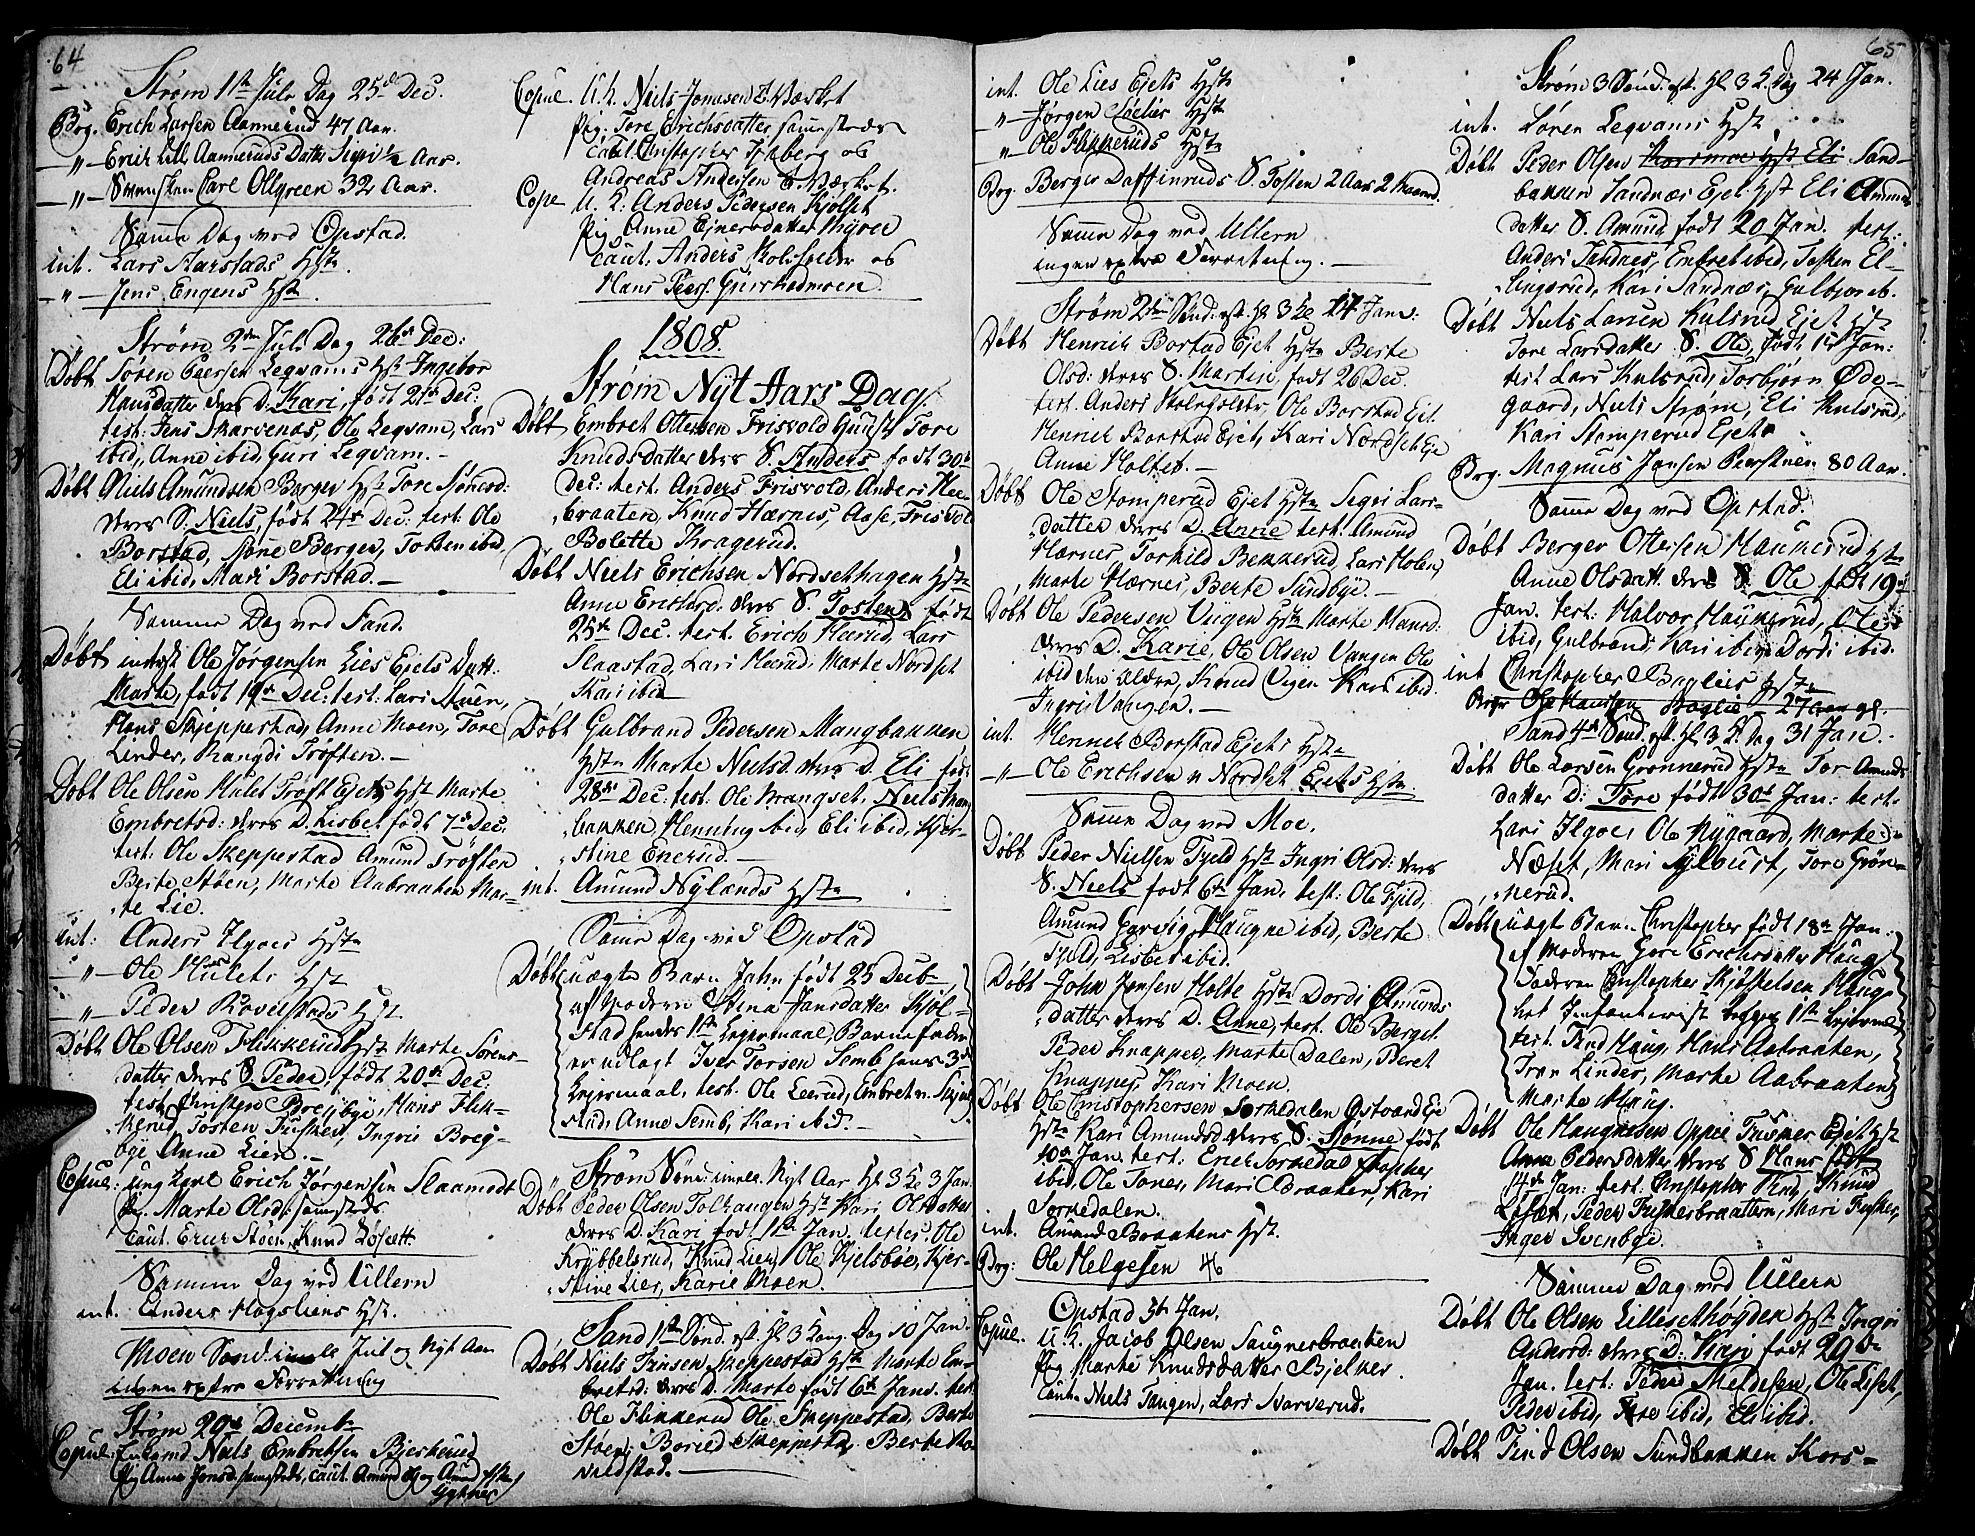 64
Strøm 1ste Jule Dag 25de Dec.
Begr. Erich Larsen Aannerud 47 Aar.
—"— Erich Lill Aanneruds Datter Sigri ½ Aar.
—"— Svensken Carl Ollgreen 32 Aar.
Samme Dag ved Opstad.
int. Lars Aarstads Hstr
—"— Jens Engens Hstr.
Strøm 2den Jule Dag 26de Dec:
Døbt Søren Peersen Legvams Hstr Ingebor
Hansdatter deres D. Kari, født 21de Dec:
test: Jens Skarvenæs, Ole Legvam, Lars
ibid, Anne ibid, Guri Legvam.—
Døbt Niels Amundsen Berger Hstr Tore Sørensd:
deres S. Niels, født 24de Dec: test: Ole
Borstad, Berger, Tosten ibid
Eli ibid, Mari Borstad.—
Samme Dag ved Sand.
Døbt indest Ole Jørgensen Lies Ejets Datt.
Marte, født 19de Dec: test: Lars
Hans Skjeppestad, Anne Moen, Tore
Linder, Rangdi Trøften.—
Døbt Ole Olsen Hulet Trøft Ejets Hstr Marte
Embretsd: deres D. Lisbet født 7de Dec.
test: Ole Skeppestad Amund Trøften
Berte Støen, Marte Aabraaten Mar-
te Lie.
int: Anders Ilgoes Hstr
—"— Ole Hulets Hst
—"— Peder Ravelstads Hst
Døbt Ole Olsen Flikkerud Hst Marte Sørens-
datter deres S. Peder, født 20de Dec:
test Christen Bregbye, Hans Flik-
kerud, Tosten Fusker, Ingri Breg-
bye Anne Lien.—
Copul: ung Karl Erich Jørgensen Slaamodt
Pig. Marte Olsd: samsteds
caut. Erich Støen, Knud Løsett.
Samme Dag ved Ullern
int. Anders Hogsliens Hst.
Moen Sønd: imell Juul og Nyt Aar
ingen extra Forretning
Strøm 29de Decemb:
Copul: Enkemd Niels Embretsen Bjerkerud
Pig Anne Jonsd samsteds, caut. Amund
Copul. U. K. Niels Jonasen E. Værket
Pig. Tore Erichsdatter samsteds
caut. Christopher Fjeberg og
Andreas Andersen E. Værket.
Cope U. K. Anders Pedersen Kjølset
Pig Anne Ejnersdatter Myrer
caut. Anders og
Hans Peers.
1808.
Strøm Nyt Aars Dag.
Døbt Embret Ottersen Frisvold Huust Tore
Knudsdatter deres S. Anders født 30te
Dec: test. Anders Frisvold, Anders Hee-
braaten, Knud Hærnes, Aase Frisvold
Bolette Kragerud.
Døbt Niels Erichsen Nordsethagen Hstr
Anne Erichsd. deres S. Tosten født
25de Dec. test. Erich Harud, Lars
Slaastad, Lari Harud, Marte Nordset
Kari ibid
Døbt Gulbrand Pedersen Mangbakken
Hstr Marte Nielsd. deres D. Eli født
28de Dec: test: Ole Brangset, Niels Mang
bakken, Henning ibid, Eli ibid, Kjer-
stine Enerud.—
int. Amund Nylands Hstr
Samme Dag ved Opstad
Døbt uægte Barn Jahn født 25 Decb.
af Moderen Stina Jansdatter Kjøl-
stad hendes 1ste Lejermaal, Barnefader
er udlagt Iver Torsen Semb hans 3de
Lejermaal, test. Ole Leerud, Embret n. Skjøl
stad, Anne Semb, Kari ibid.—
Strøm Sønd: imell. Nyt Aar Hl 3 K 3 Jan.
Døbt Peder Olsen Tolhaugen Hst Kari Olsdatter
deres D. Kari født 1ste Jan. testes: Ole
Krybbelsrud, Knud Lier, Ole Kjelsbøe, Kjer-
stine Lier, Karie Moen.
Sand 1ste Sønd. est. Hl 3 Kong. Dag 10 Jan.
Døbt Niels Finsen Skeppestad Hstr Marte Em-
bretsd: deres D. Marte født 6te Jan. test
Ole Flikkerud Ole Skeppestad, Berte
Støen, Boried Skeppestad, Berte Ra-
veldstad.—
int. Ole Lies Ejets Hstr
—"— Jørgen Hstr
—"— Ole Flikkeruds Hstr
Beg. Berger Daffinruds S. Tosten 2 Aar 2 Maaned.
Samme Dag ved Ullern
ingen extra Forretning.—
Strøm 2den Sønd: est. Hl 3 Ke 17 Jan:
Døbt Henrich Borstad Ejet Hstr Berte
Olsd: deres S. Martin, født 26 Dec.
test. Anders Ole Borstad Eje
Henrich Borstad Ejet, Kari Nordset Eje
Anne Holtet.—
Døbt Ole Stomperud Ejet Hstr Segri Lars-
datter deres D. Anne test. Amund
Hærnes Torkild Bekkerud, Lars Holen,
Marte Hærnes, Berte Sandbye.—
Døbt Ole Pedersen Viigen Hstr Marte Hansd:
deres D. Karie, Ole Olsen Vangen Ole
ibid den ældre, Knud Vigen Kari ibid.
Ingri Vangen.—
int. Henrich Borstad Ejets Hstr
—"— Ole Erichsen n Nordset Ejets Hstr.
Samme Dag ved Moe.
Døbt Peder Nielsen Fjeld Hst Ingri Olsd: deres
S. Niels født 6te Jan. test: Ole Fjeld,
Amund Haugne ibid, Berte
Fjeld, Lisbet ibid.
Døbt John Jensen Holte Hst Dordi Amunds
datter deres D. Anne, test. Ole Berget
Peder Knapper, Marte Dalen, Beret
Knapper, Kari Moen.
Døbt Ole Christophersen Sørkedalen Eje
Hstr Kari Amundsd deres S. Tønne født
10de Jan. test: Erich Sorkedal
ibid, Ole Tones, Mari Braaten, Kari
Sorkedalen.
int. Amund Braatens Hst.
Beg: Ole Helgesen 46
Opstad 5te Jan.
Copul. U. K. Jacob Olsen Saugnesbraatien
Pig Marte Knudsdatter Bjelker.
Caut. Niels Tangen, Lars Narverud.
65
Strøm 3 Sønd. est. Hl 3 K. Dag 24 Jan.
int. Søren Legvams Hstr
Døbt Peder Olsen Sand-
bakken Sandnæs Ejet Hst Eli Amund
datter S. Amund født 20 Jan. test:
Anders Sandnes, Embret ibid, Tosten El-
lingsrud, Kari Sandnæs, Gulbjor ib.
Døbt Niels Larsen Kulsrud Ejet Hstr
Tore Larsdatter S. Ole, født Jan:
test Lars Kulsrud, Torbjørn Øde-
gaard, Niels Strøm, Eli Kulsrud,
Kari Stomperud Ejet.
Begr. Magnus Jansen 80 Aar.
Samme Dag ved Opstad.
Døbt Berger Ottersen Haukerud Hstr
Anne Olsdatt. deres S. Ole født 19de
Jan. test: Halvor Haukerud, Ole
ibid, Gulbrand, Kari ibid, Dordi ibid.
int Christopher Baglies Hstr
Begr Ole Hansen Baglie 27 Aar gl.
Sand 4de Sønd. est. Hl 3 K. Dag 31 Jan.
Døbt Ole Larsen Grønnerud Hstr Tor Amunds
datter D: Tore født 30te Jan: test:
Lars Ilgoe, Ole Nygaard, Marte
Næset, Mari Tore Grøn-
nerud.
Døbt uægt Barn Christopher født 18de Jan.
af Moderen Gore Erichsdatter Haug
Faderen Christopher Kjøstelsen Haug
het Infanterist begges 1ste Lejerml
test. Find Haug, Hans Aabraaten,
Iran Linder, Marte Aabraaten
Marte Haug.
Døbt Ole Haugnesen Oppie Fusker Ejet Hst
Anne Pedersdatter deres S Hans født
14de Jan: test. Christopher Knud
Løseth, Peder Fuskerbraatten, Mari Fusker,
Inger Svenbye.
Samme Dag ved Ullern
Døbt Ole Olsen Lillesethøgden Hst Ingri
Andersd: deres D: Kari født 29de
Jan. test: Peder Meldesen, Ole Liset,
Peder ibid, Tore ibid, Eli ibid.
Døbt Find Olsen Sundbakken Kors-